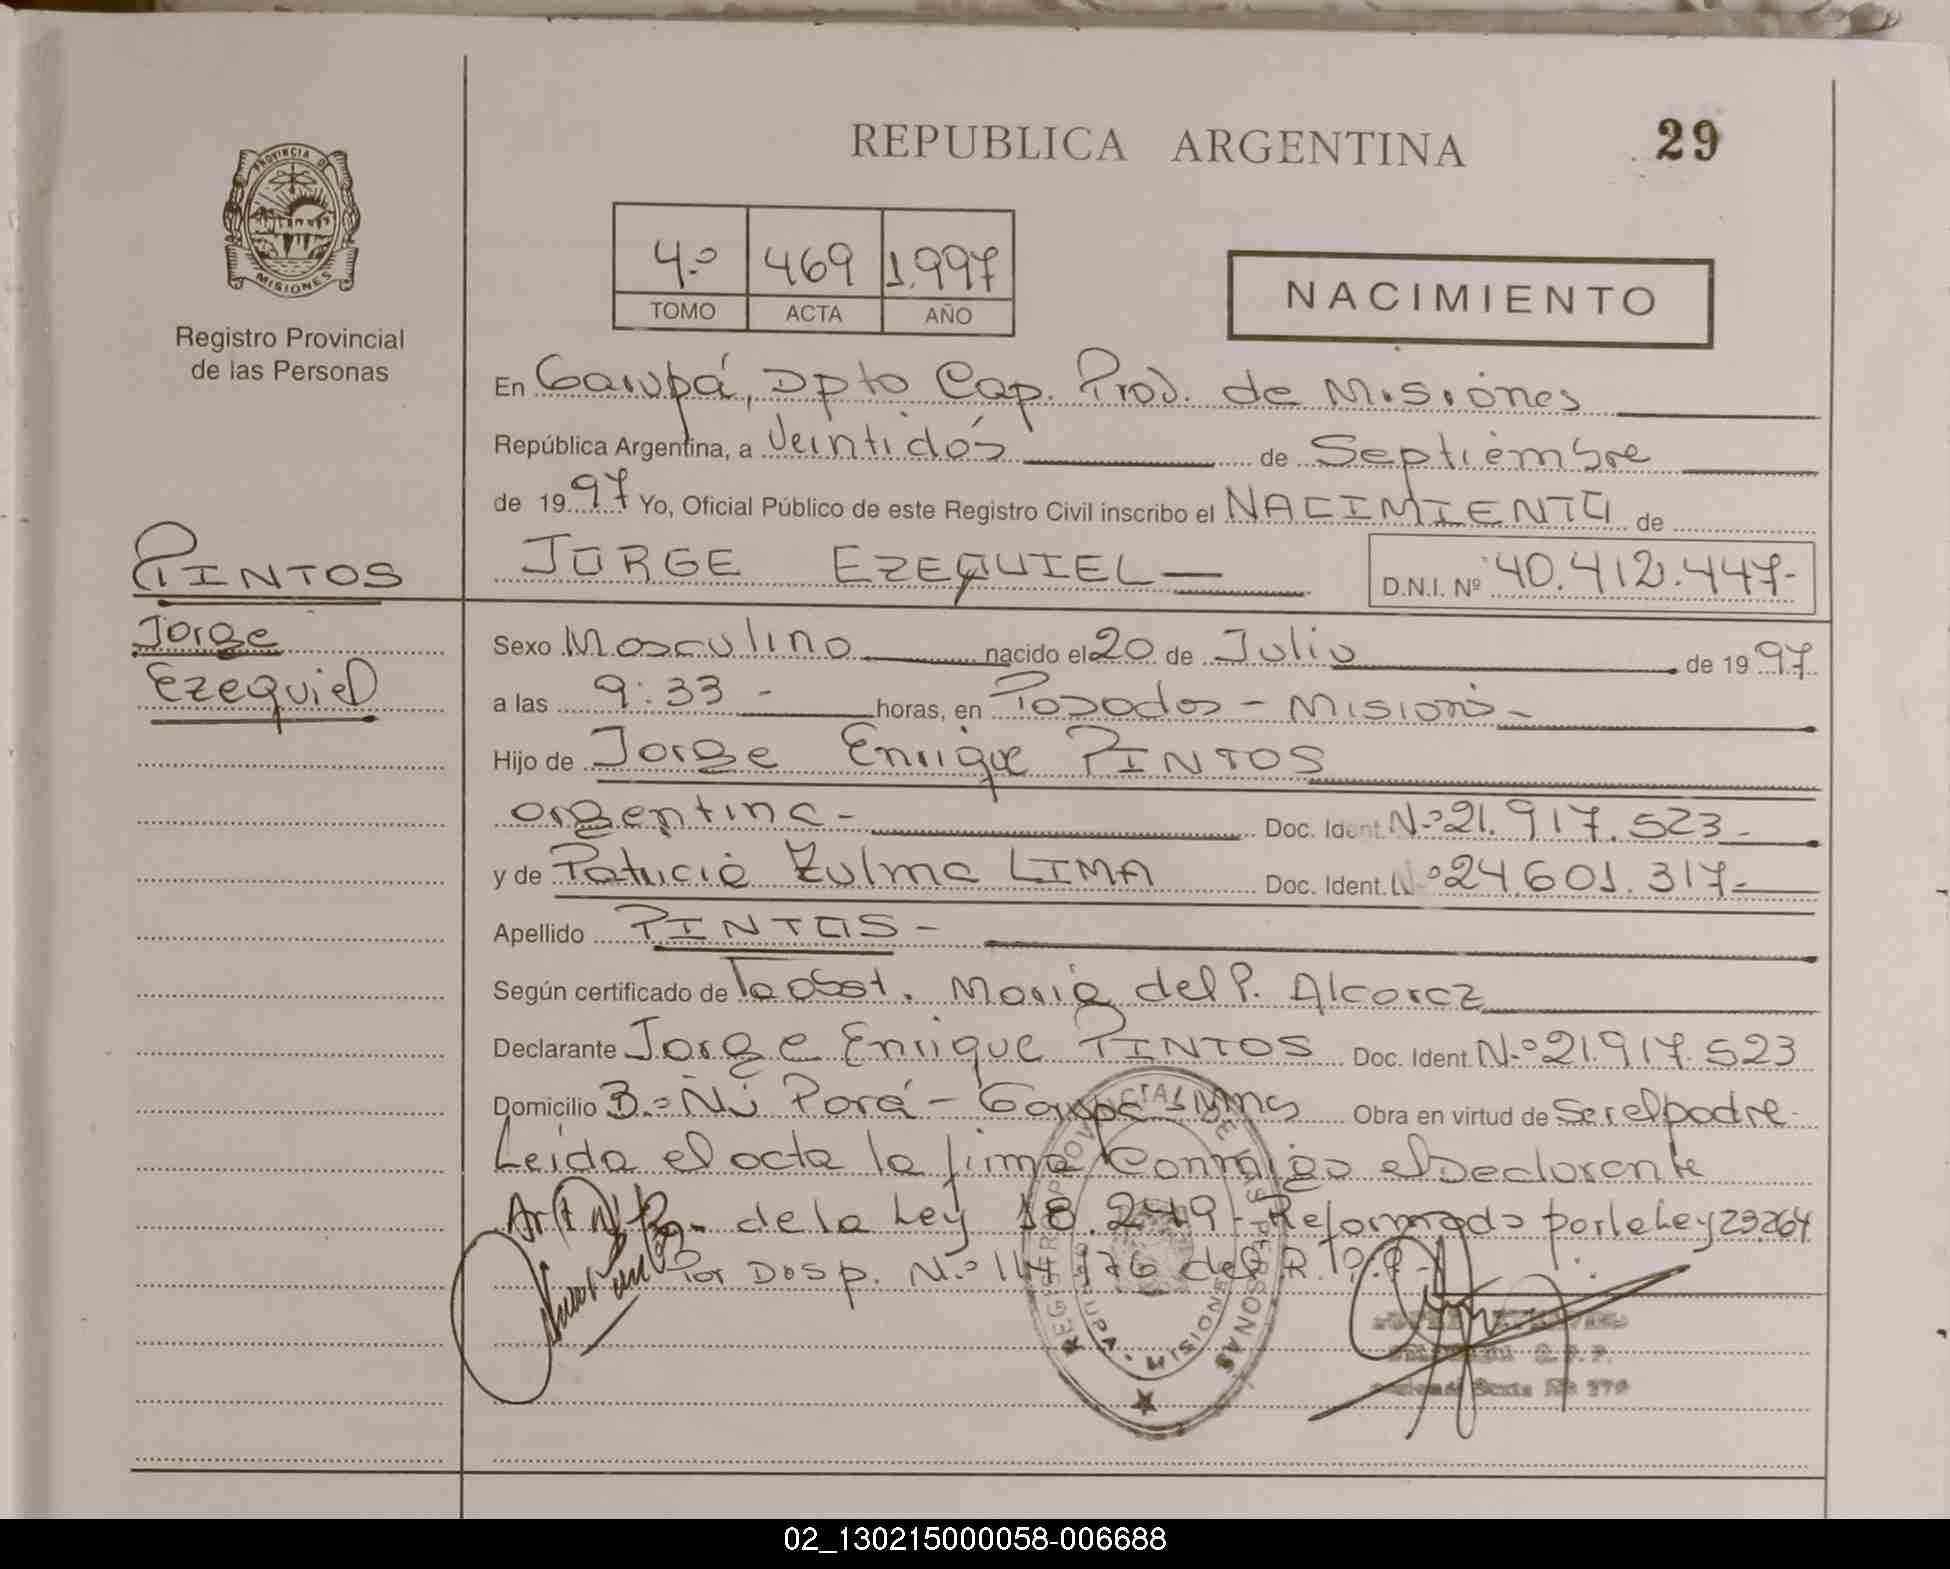 REPUBLICA ARGENTINA
29
PROVINCIA DE
MISIONES
Registro Provincial
de las Personas
4.º 469 1.997
TOMO ACTA AÑO
NACIMIENTO
En Garupá, Dpto Cap. Prov. de Misiones
República Argentina, a Veintidós de Septiembre
de 1997 Yo, Oficial Público de este Registro Civil inscribo el NACIMIENTO de
JORGE EZEQUIEL D.N.I. Nº 40.412.447-
PINTOS
Jorge
Ezequiel
Sexo Masculino nacido el 20 de Julio de 1997
a las 9:33 - horas, en Posadas - Misiones -
Hijo de Jorge Enrique PINTOS
argentina - Doc. Ident. N.º 21.917.523-
y de Patricia Zulma LIMA Doc. Ident. N.º 24.601.317-
Apellido PINTOS -
Según certificado de la obst. María del P. Alcaraz
Declarante Jorge Enrique PINTOS Doc. Ident. N.º 21.917.523
Domicilio B.º Ñu Porá - Garupá Mnes Obra en virtud de ser el padre.
Leída el acta la firma conmigo el Declarante
de la Ley 18.249 - Reformada por la Ley 23.264
Por Disp. N.º 114/76 del R.P.P.
REGISTRO PROVINCIAL DE LAS PERSONAS
GARUPA - MISIONES